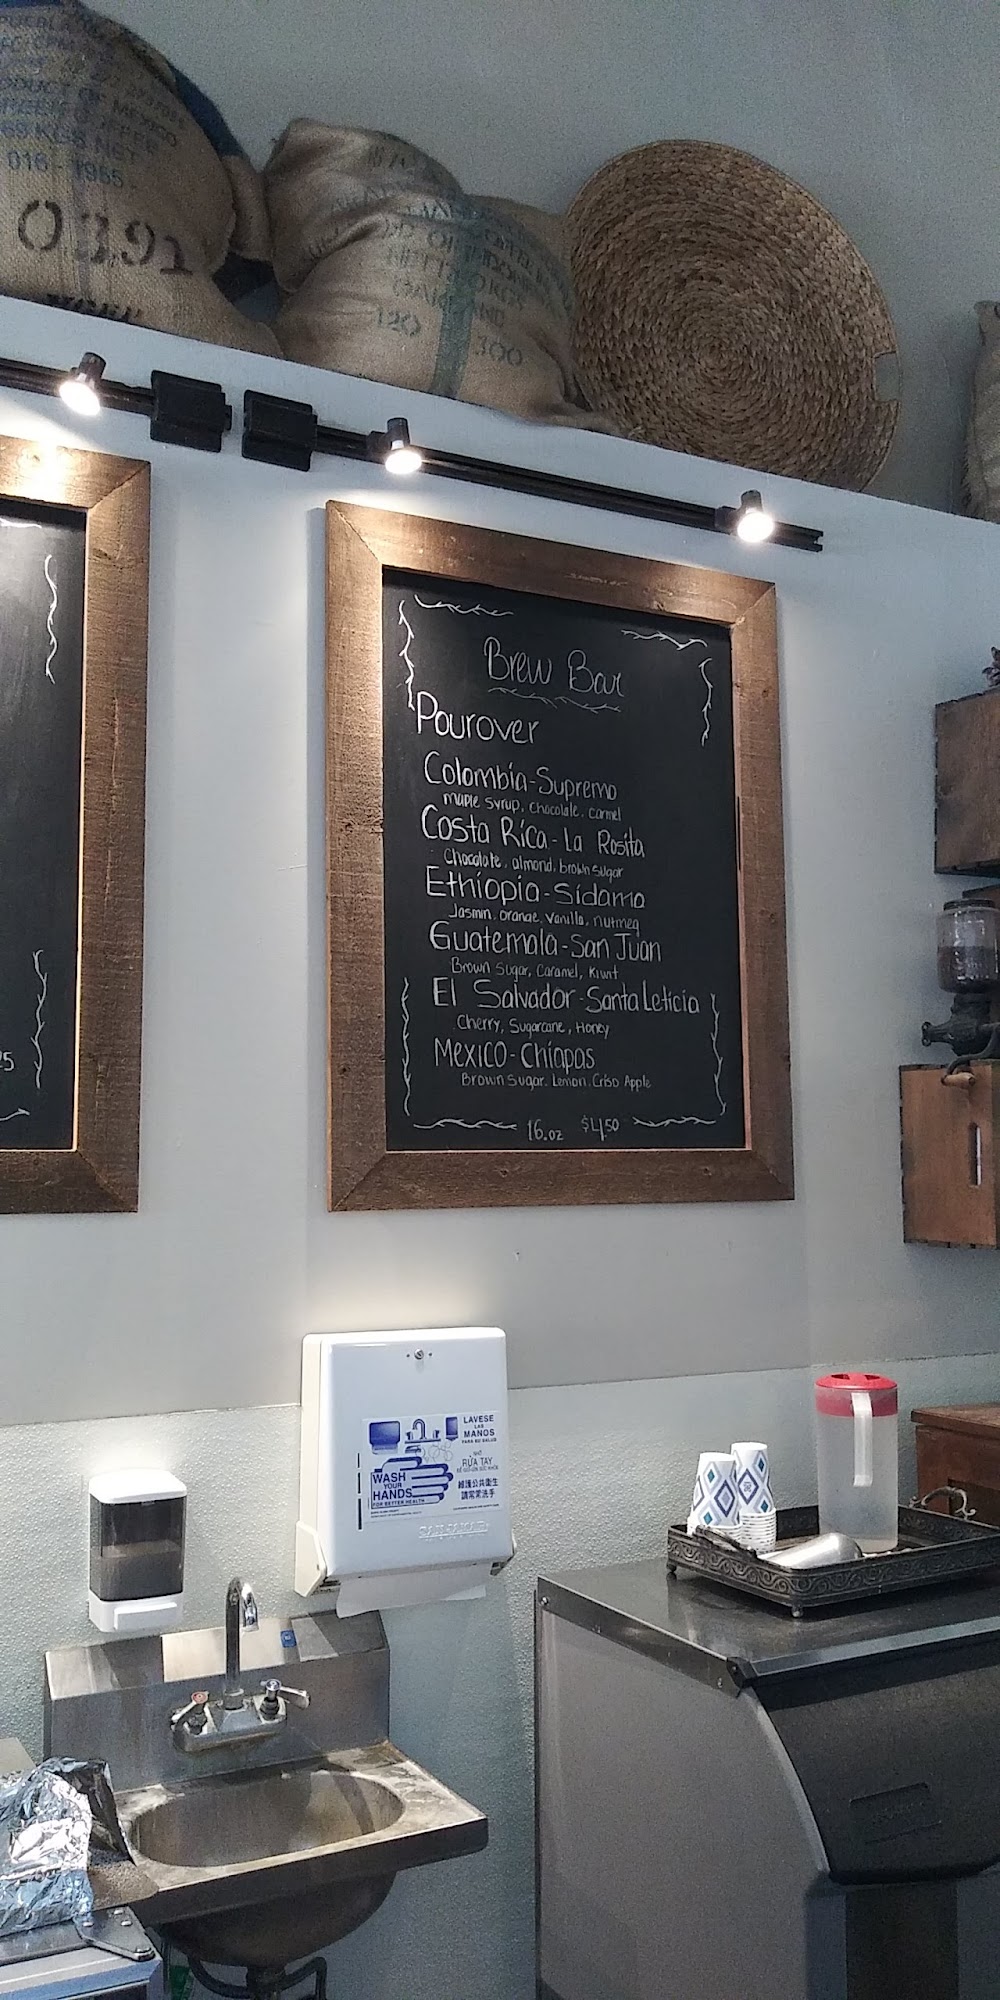 PRODUCT OF MEXICO
GREEN COFFEE
69 KGS NET
016 - 1965
0392
120
300
25
Brew Bar
Pourover
Colombia - Supremo
maple syrup, chocolate, carmel
Costa Rica - La Rosita
Chocolate, almond, brown sugar
Ethiopia - Sidamo
Jasmin, orange, vanilla, nutmeg
Guatemala - San Juan
Brown Sugar, Caramel, Kiwi
El Salvador - Santa Leticia
Cherry, Sugarcane, Honey
Mexico - Chiapas
Brown Sugar, Lemon, Crisp Apple
16.oz $4.50
LAVESE
LAS
MANOS
PARA SU SALUD
RỬA TAY
WASH
YOUR
HANDS
FOR BETTER HEALTH
維護公共衛生
請常常洗手
SAN JAMAR